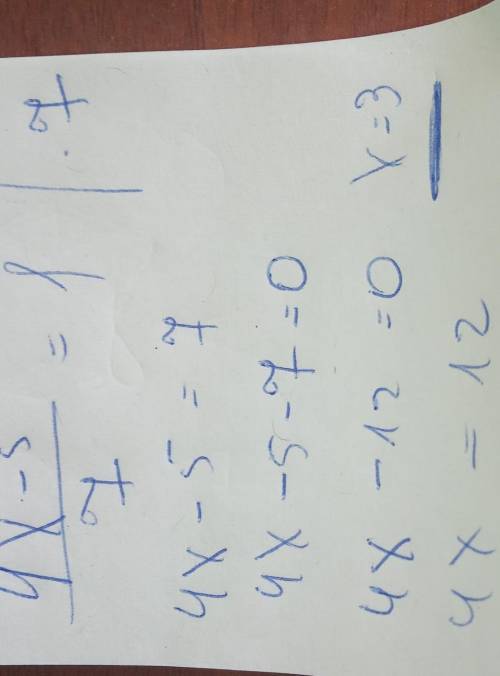 4x-5/7 = 1 | ·7
4x-5 = 7
4x-5-7=0
4x-12=0 x=3
4x = 12